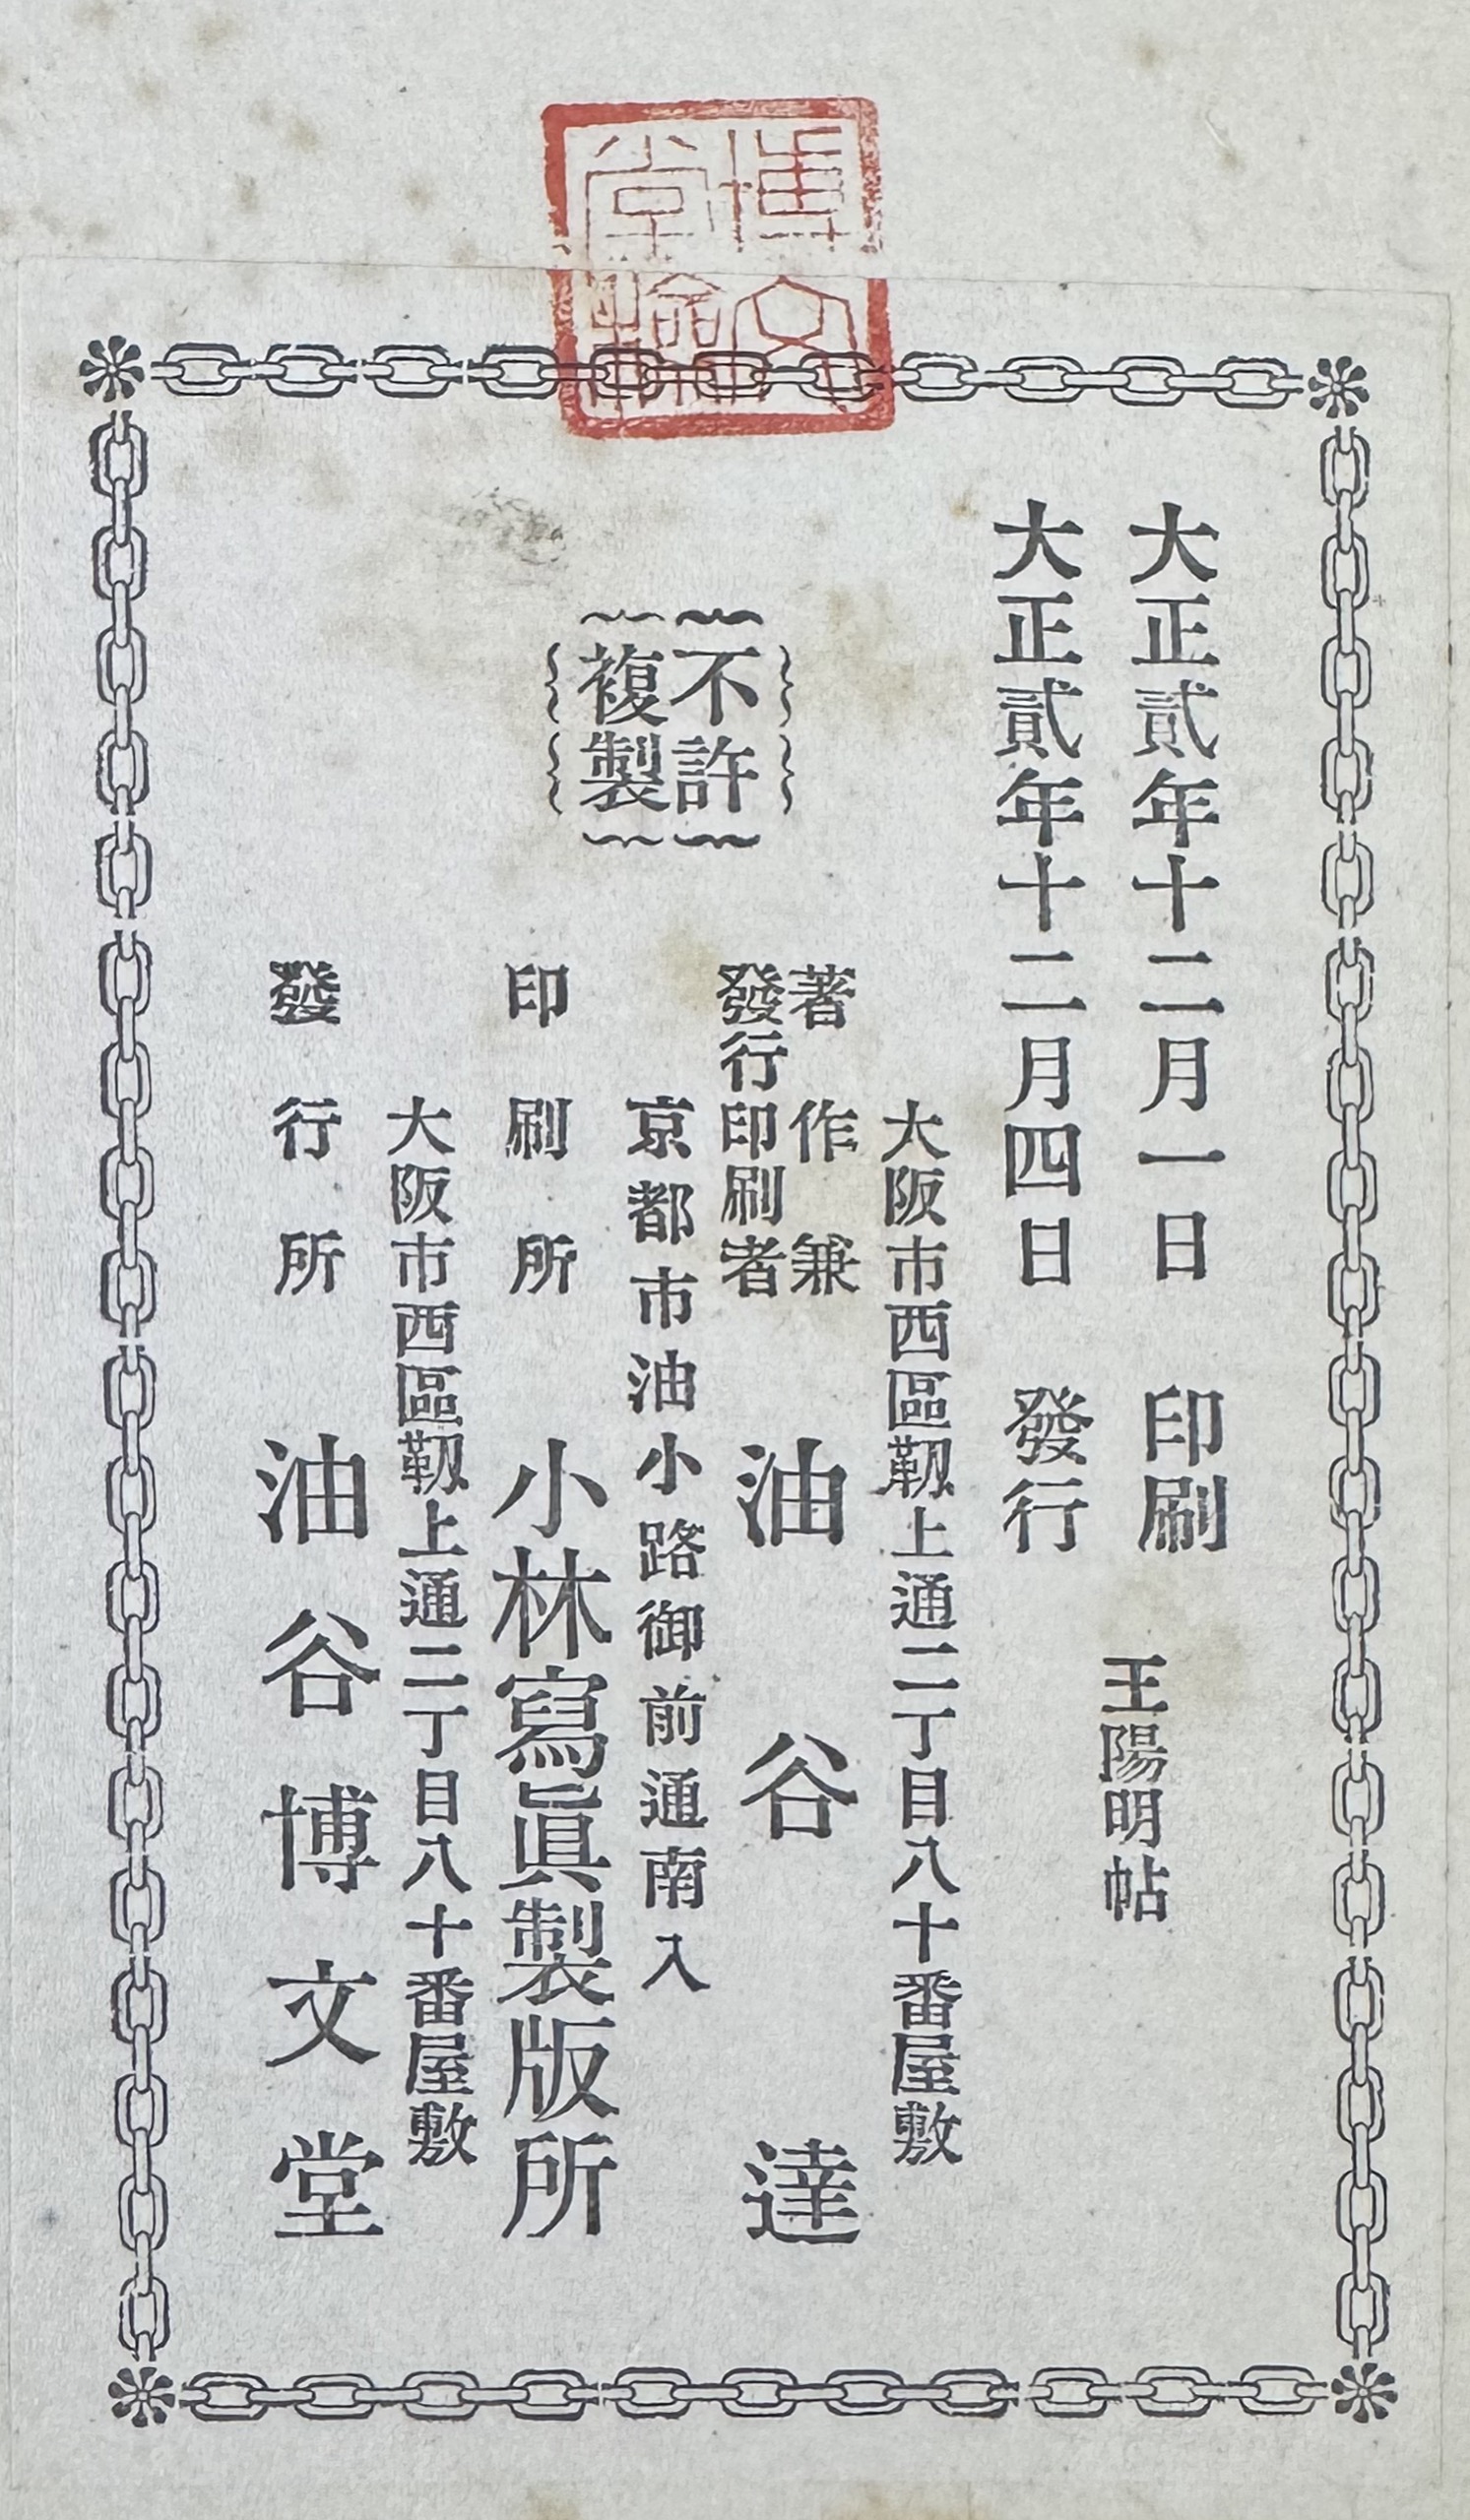 博文
堂輪
大正貳年十二月一日 印刷
大正貳年十二月四日 發行
王陽明帖
不許
複製
大阪市西區靱上通二丁目八十番屋敷
著作兼
發行印刷者
油谷達
京都市油小路御前通南入
印刷所 小林寫眞製版所
大阪市西區靱上通二丁目八十番屋敷
發行所 油谷博文堂